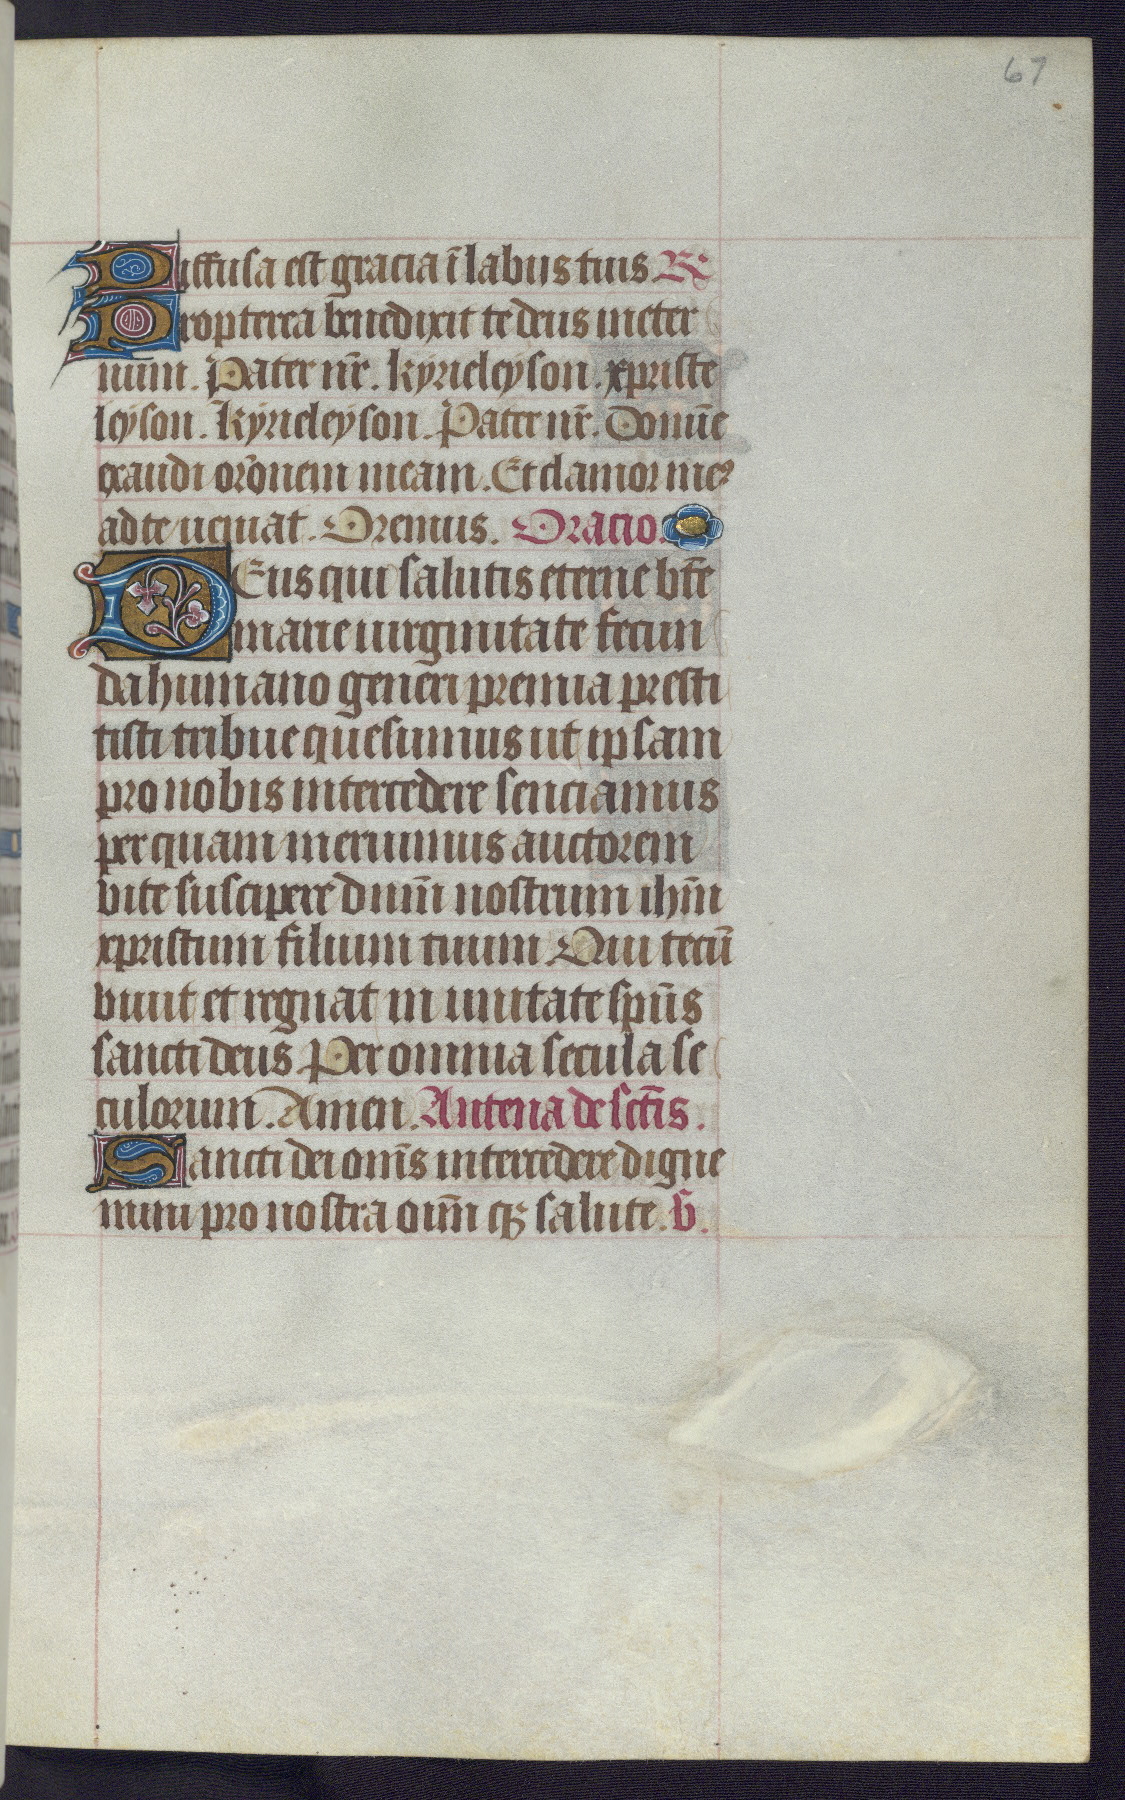 67
Diffusa est gracia ī labiis tuis R
Propterea benedixit te deus in eter
num. Pater nr̄. kyrieleyson. xpriste
leyson. Kyrieleyson. Pater nr̄. Domīe
exaudi or̄onem meam. Et clamor meꝰ
ad te ueniat. Oremus. Oracio.
DEus qui salutis eterne bt̄e
marie uirginitate fecun
da humano generi premia presti
tisti tribue quesumus ut ipsam
pro nobis intercedere senciamus
per quam meruimus auctorem
vite suscipere dnūm nostrum ihm̄
xpristum filium tuum Qui tecū
viuit et regnat in unitate spūs
sancti deus Per omnia secula se
culorum. Amen. Antena de sctīs.
Sancti dei om̄s intercedere digne
mini pro nostra oim̄ qꝫ salute. v̄.